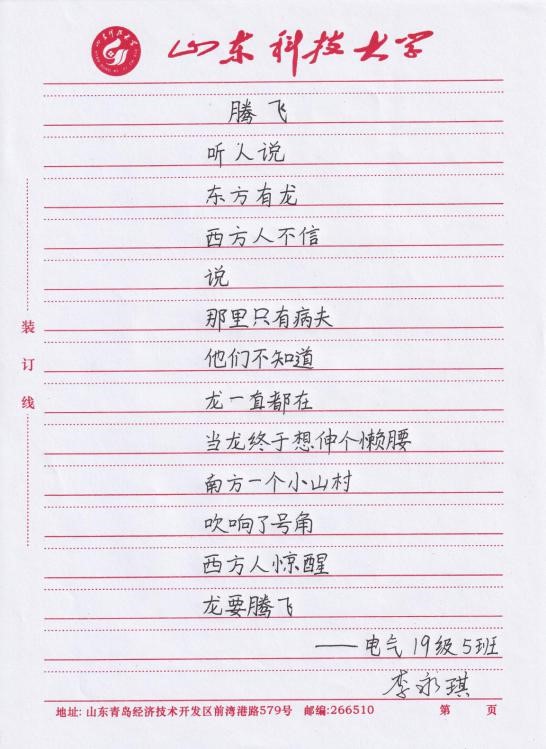 山东科技大学
腾飞
听人说
东方有龙
西方人不信
说
那里只有病夫
他们不知道
龙一直都在
当龙终于想伸个懒腰
南方一个小山村
吹响了号角
西方人惊醒
龙要腾飞
——电气19级5班
李永琪
装订线
地址:山东青岛经济技术开发区前湾港路579号 邮编:266510 第 页